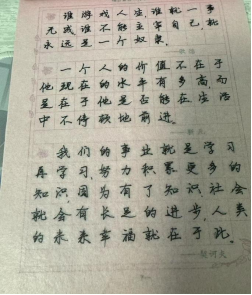 谁游戏人生,谁就一事
无成;谁不能主宰自己,就
永远是一个奴隶。
一个人的价值不在于
他现在的水平有多高,而
是在于他是否能在生活
中不停顿地前进。
我们的事业就是学习
再学习,努力积累更多的
知识,因为有了知识社会
就会有长足的进步,人类
的未来幸福就在于此。
——契诃夫